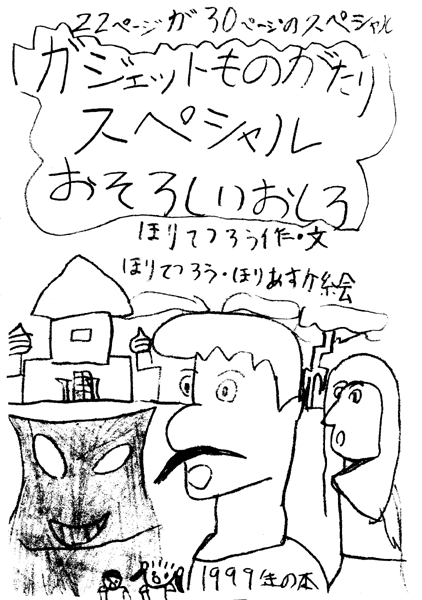 22ページが30ページのスペシャル
ガジェットものがたり
スペシャル
おそろしいおしろ
ほりてつろう作・文
ほりてつろう・ほりあすか絵
1999年の本